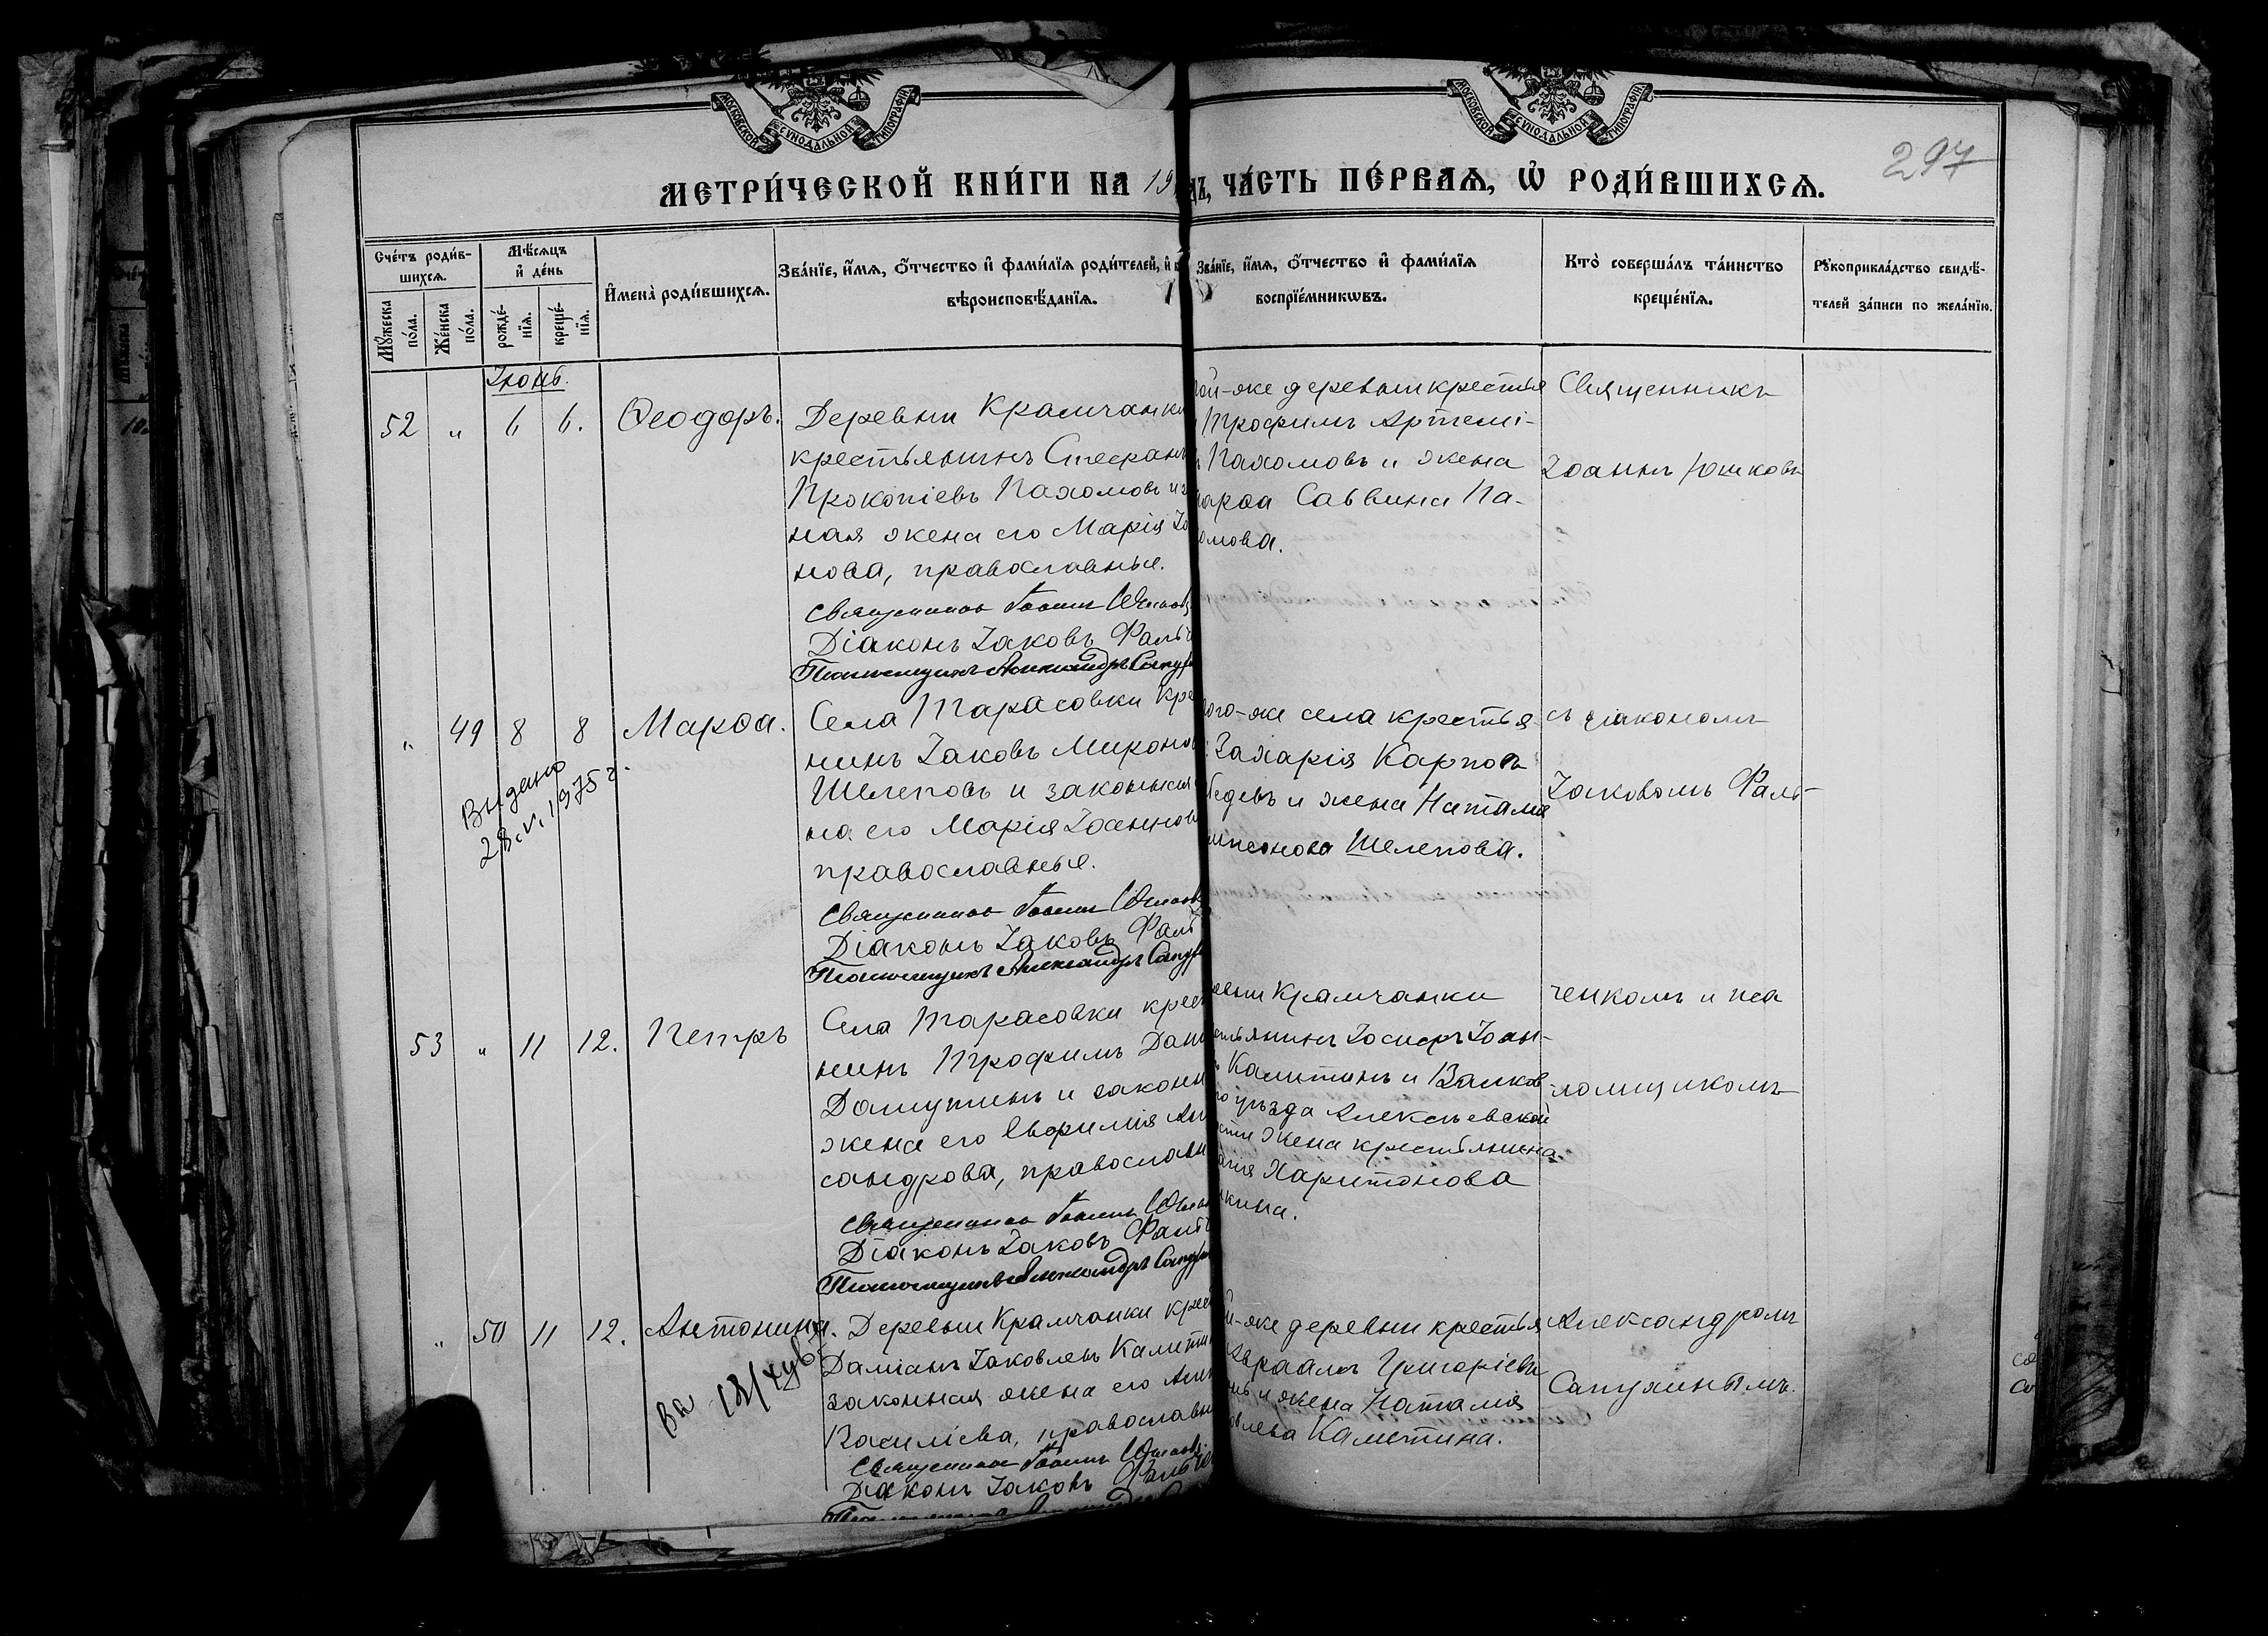 МОСКОВСКОЙ СѴНОДАЛЬНОЙ ТИПОГРАФІИ
МОСКОВСКОЙ СѴНОДАЛЬНОЙ ТИПОГРАФІИ
297
МЕТРИ́ЧЕСКОЙ КНИ́ГИ НА 19
ЧА́СТЬ ПЕ́РВАЯ, Ѡ҆ РОДИ́ВШИХСЯ.
Сче́тъ роди́в-
шихся.
Мѣ́сяцъ
и҆ де́нь
Мꙋ́жеска
по́ла.
Же́нска
по́ла.
рожде́-
нїя.
креще́-
нїя.
И҆мена̀ роди́вшихся.
Зва́нїе, и҆́мя, ѻ҆́тчество и҆ фами́лїя роди́телей, и҆
вѣроисповѣ́данїя.
Зва́нїе, и҆́мя, ѻ҆́тчество и҆ фами́лїя
воспрїе́мникѡвъ.
Кто̀ соверша́лъ та́инство
креще́нїя.
Рꙋкоприкла́дство свидѣ́-
телей за́писи по жела́нїю.
Іюнь.
52 " 6 6. Ѳеодоръ.
Деревни Крамчанки
крестьянинъ Стефанъ
Прокопіевъ Пахомовъ и з
ная жена его Марія Іо
нова, православные.
Священникъ Іоаннъ Юшковъ
Діаконъ Іаковъ Фальч
Псаломщикъ Александръ Сапух
ой-же деревни крестья
Трофимъ Артемі-
Пахомовъ и жена
арѳа Саввина Па-
омова.
Священникъ
Іоаннъ Юшковъ
" 49 8 8 Марѳа.
Выдано
28.V.1975 г.
Села Тарасовки кре
нинъ Іаковъ Мироно
Шелеповъ и законная
на его Марія Іоаннов
православные.
Священникъ Іоаннъ Юшковъ
Діаконъ Іаковъ Фальч
Псаломщикъ Александръ Сапух
ого-же села крестья
Захарія Карпов
бедевъ и жена Наталія
мпсонова Шелепова.
съ діакономъ
Іаковомъ Фаль-
53 " 11 12. Петръ
Села Тарасовки крест
нинъ Трофимъ Дани
и законн
жена его Евфимія Але
сандрова, православн
Священникъ Іоаннъ Юшков
Діаконъ Іаковъ Фальч
Псаломщикъ Александръ Сапух
евни Крамчанки
тьянинъ Іосифъ Іоан-
Калитинъ и Валков
го уѣзда Алексѣевской
сти жена крестьянина
Харитонова
кина.
ченкомъ и пса
ломщикомъ
" 50 11 12. Антонина.
Деревни Крамчанки крест
Даміанъ Іаковлевъ Калити
законная жена его
Василіева, православн
Священникъ Іоаннъ Юшковъ
Діаконъ Іаковъ Фальче
й-же деревни крестья
Григоріевъ
нъ и жена Наталія
овлева Калитина.
Александромъ
Сапухинымъ.